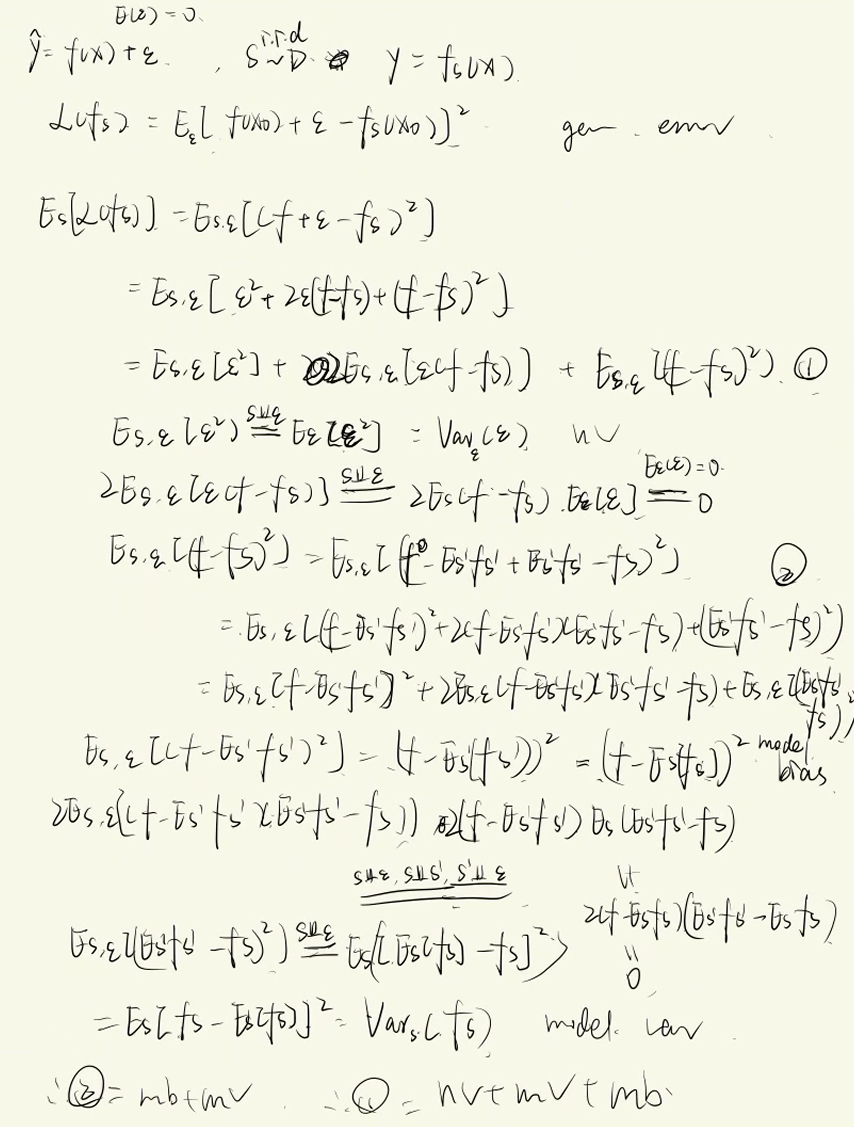 E(ε) = 0.
ŷ = f(x) + ε. , S i.i.d ~ D y = fs(x)
L(fs) = Eε[f(x0) + ε - fs(x0)]² gen
Es[L(fs)] = Es,ε[(f + ε - fs)²]
= Es,ε[ε² + 2ε(f-fs) + (f-fs)²]
= Es,ε[ε²] + 2Es,ε[ε(f-fs)] + Es,ε[(f-fs)²] ①
Es,ε[ε²] S⫫ε = Eε[ε²] = Varε(ε) nv
2Es,ε[ε(f-fs)] S⫫ε = 2Es(f-fs).Eε[ε] Eε(ε)=0. = 0
Es,ε[(f-fs)²] = Es,ε[(f-Es'fs' + Es'fs' -fs)²] ②
= Es,ε[(f-Es'fs')² + 2(f-Es'fs')(Es'fs'-fs) + (Es'fs'-fs)²]
= Es,ε[f-Es'fs']² + 2Es,ε(f-Es'fs')(Es'fs'-fs) + Es,ε[(Es'fs'-fs)²]
Es,ε[(f-Es'fs')²] = (f-Es'(fs'))² = (f-Es[fs])² model bias
2Es,ε[(f-Es'fs')(Es'fs'-fs)] 2(f-Es'fs') Es(Es'fs'-fs)
S⫫ε, S⫫S', S'⫫ε
2(f-Esfs)(Es'fs'-Esfs)
=
0
Es,ε[(Es'fs'-fs)²] S⫫ε = Es[[Es[fs]-fs]²]
= Es[fs-Es[fs]]² = Vars(fs) model. var
∴ ② = mb+mv . ∴ ① = nv+mv+mb